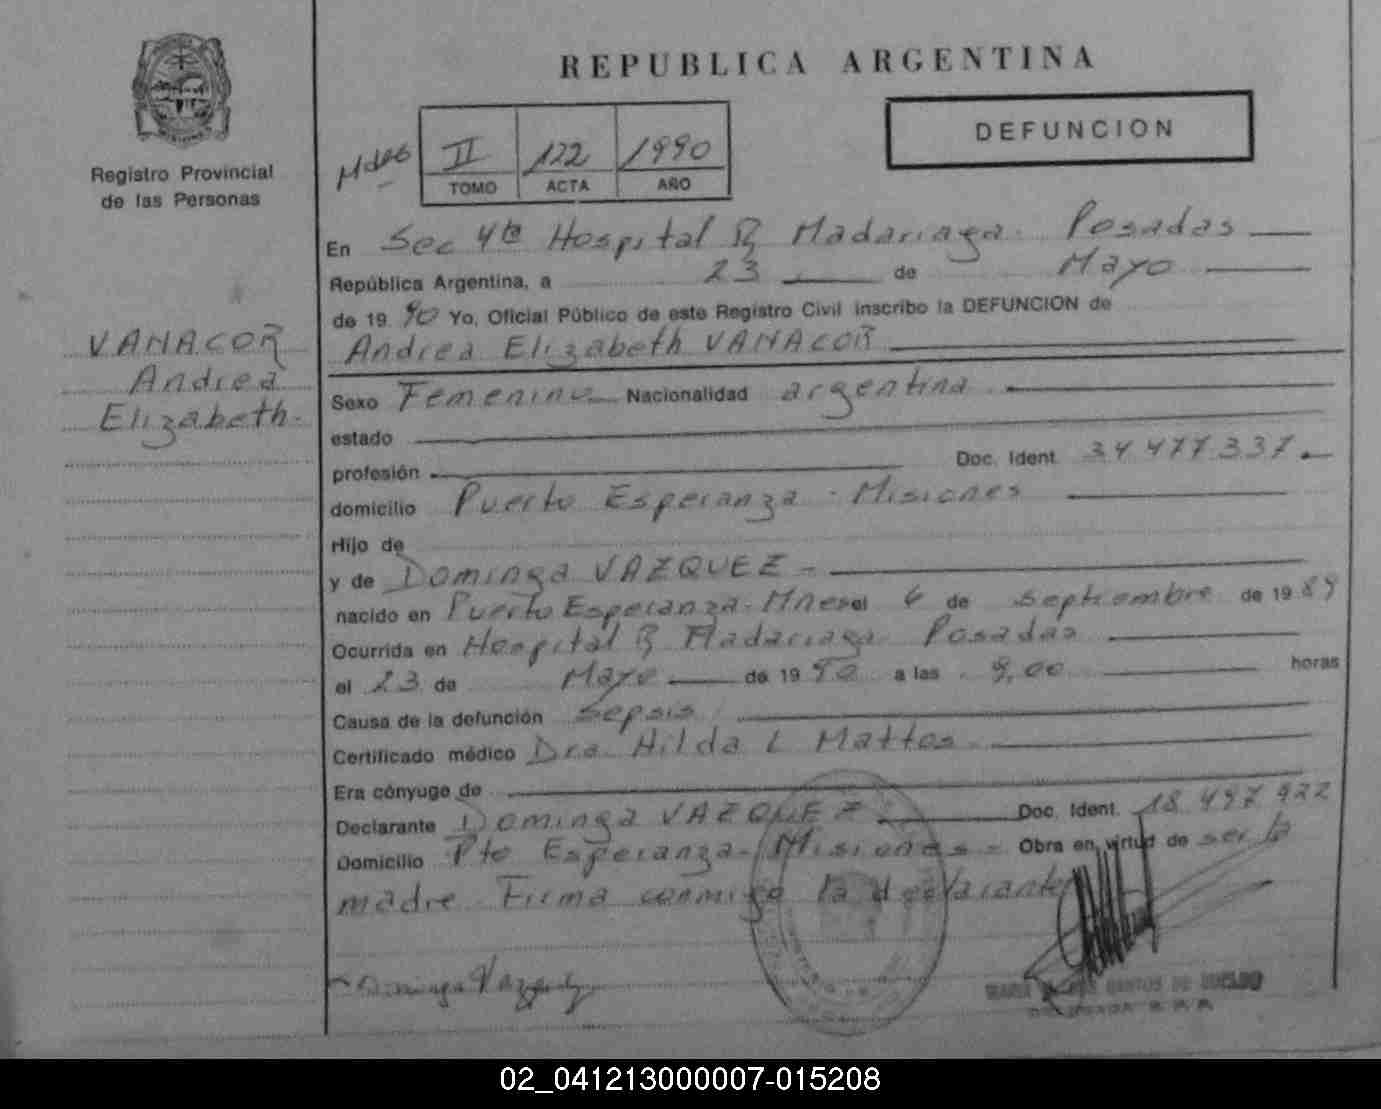 REPUBLICA ARGENTINA
DEFUNCION
Registro Provincial
de las Personas
II 122 1990
TOMO ACTA AÑO
En Sec 4ta Hospital R Madariaga. Posadas
República Argentina, a 23 de Mayo
de 19 90 Yo, Oficial Público de este Registro Civil inscribo la DEFUNCION de
Andrea Elizabeth VANACOR
VANACOR
Andrea
Elizabeth.
Sexo Femenino Nacionalidad argentina
estado
profesión Doc. Ident. 34 477.337.
domicilio Puerto Esperanza - Misiones
Hijo de
y de Dominga VAZQUEZ -
nacido en Puerto Esperanza. Mnes el 6 de septiembre de 19 89
Ocurrida en Hospital R Madariaga Posadas
el 23 de Mayo de 19 90 a las 9,00 horas
Causa de la defunción Sepsis
Certificado médico Dra Hilda L Mattos
Era cónyuge de
Declarante Dominga VAZQUEZ Doc. Ident. 18 497 922
Domicilio Pto Esperanza - Misiones - Obra en virtud de ser la
madre. Firma conmigo la declarante
Dominga Vazquez
02_041213000007-015208